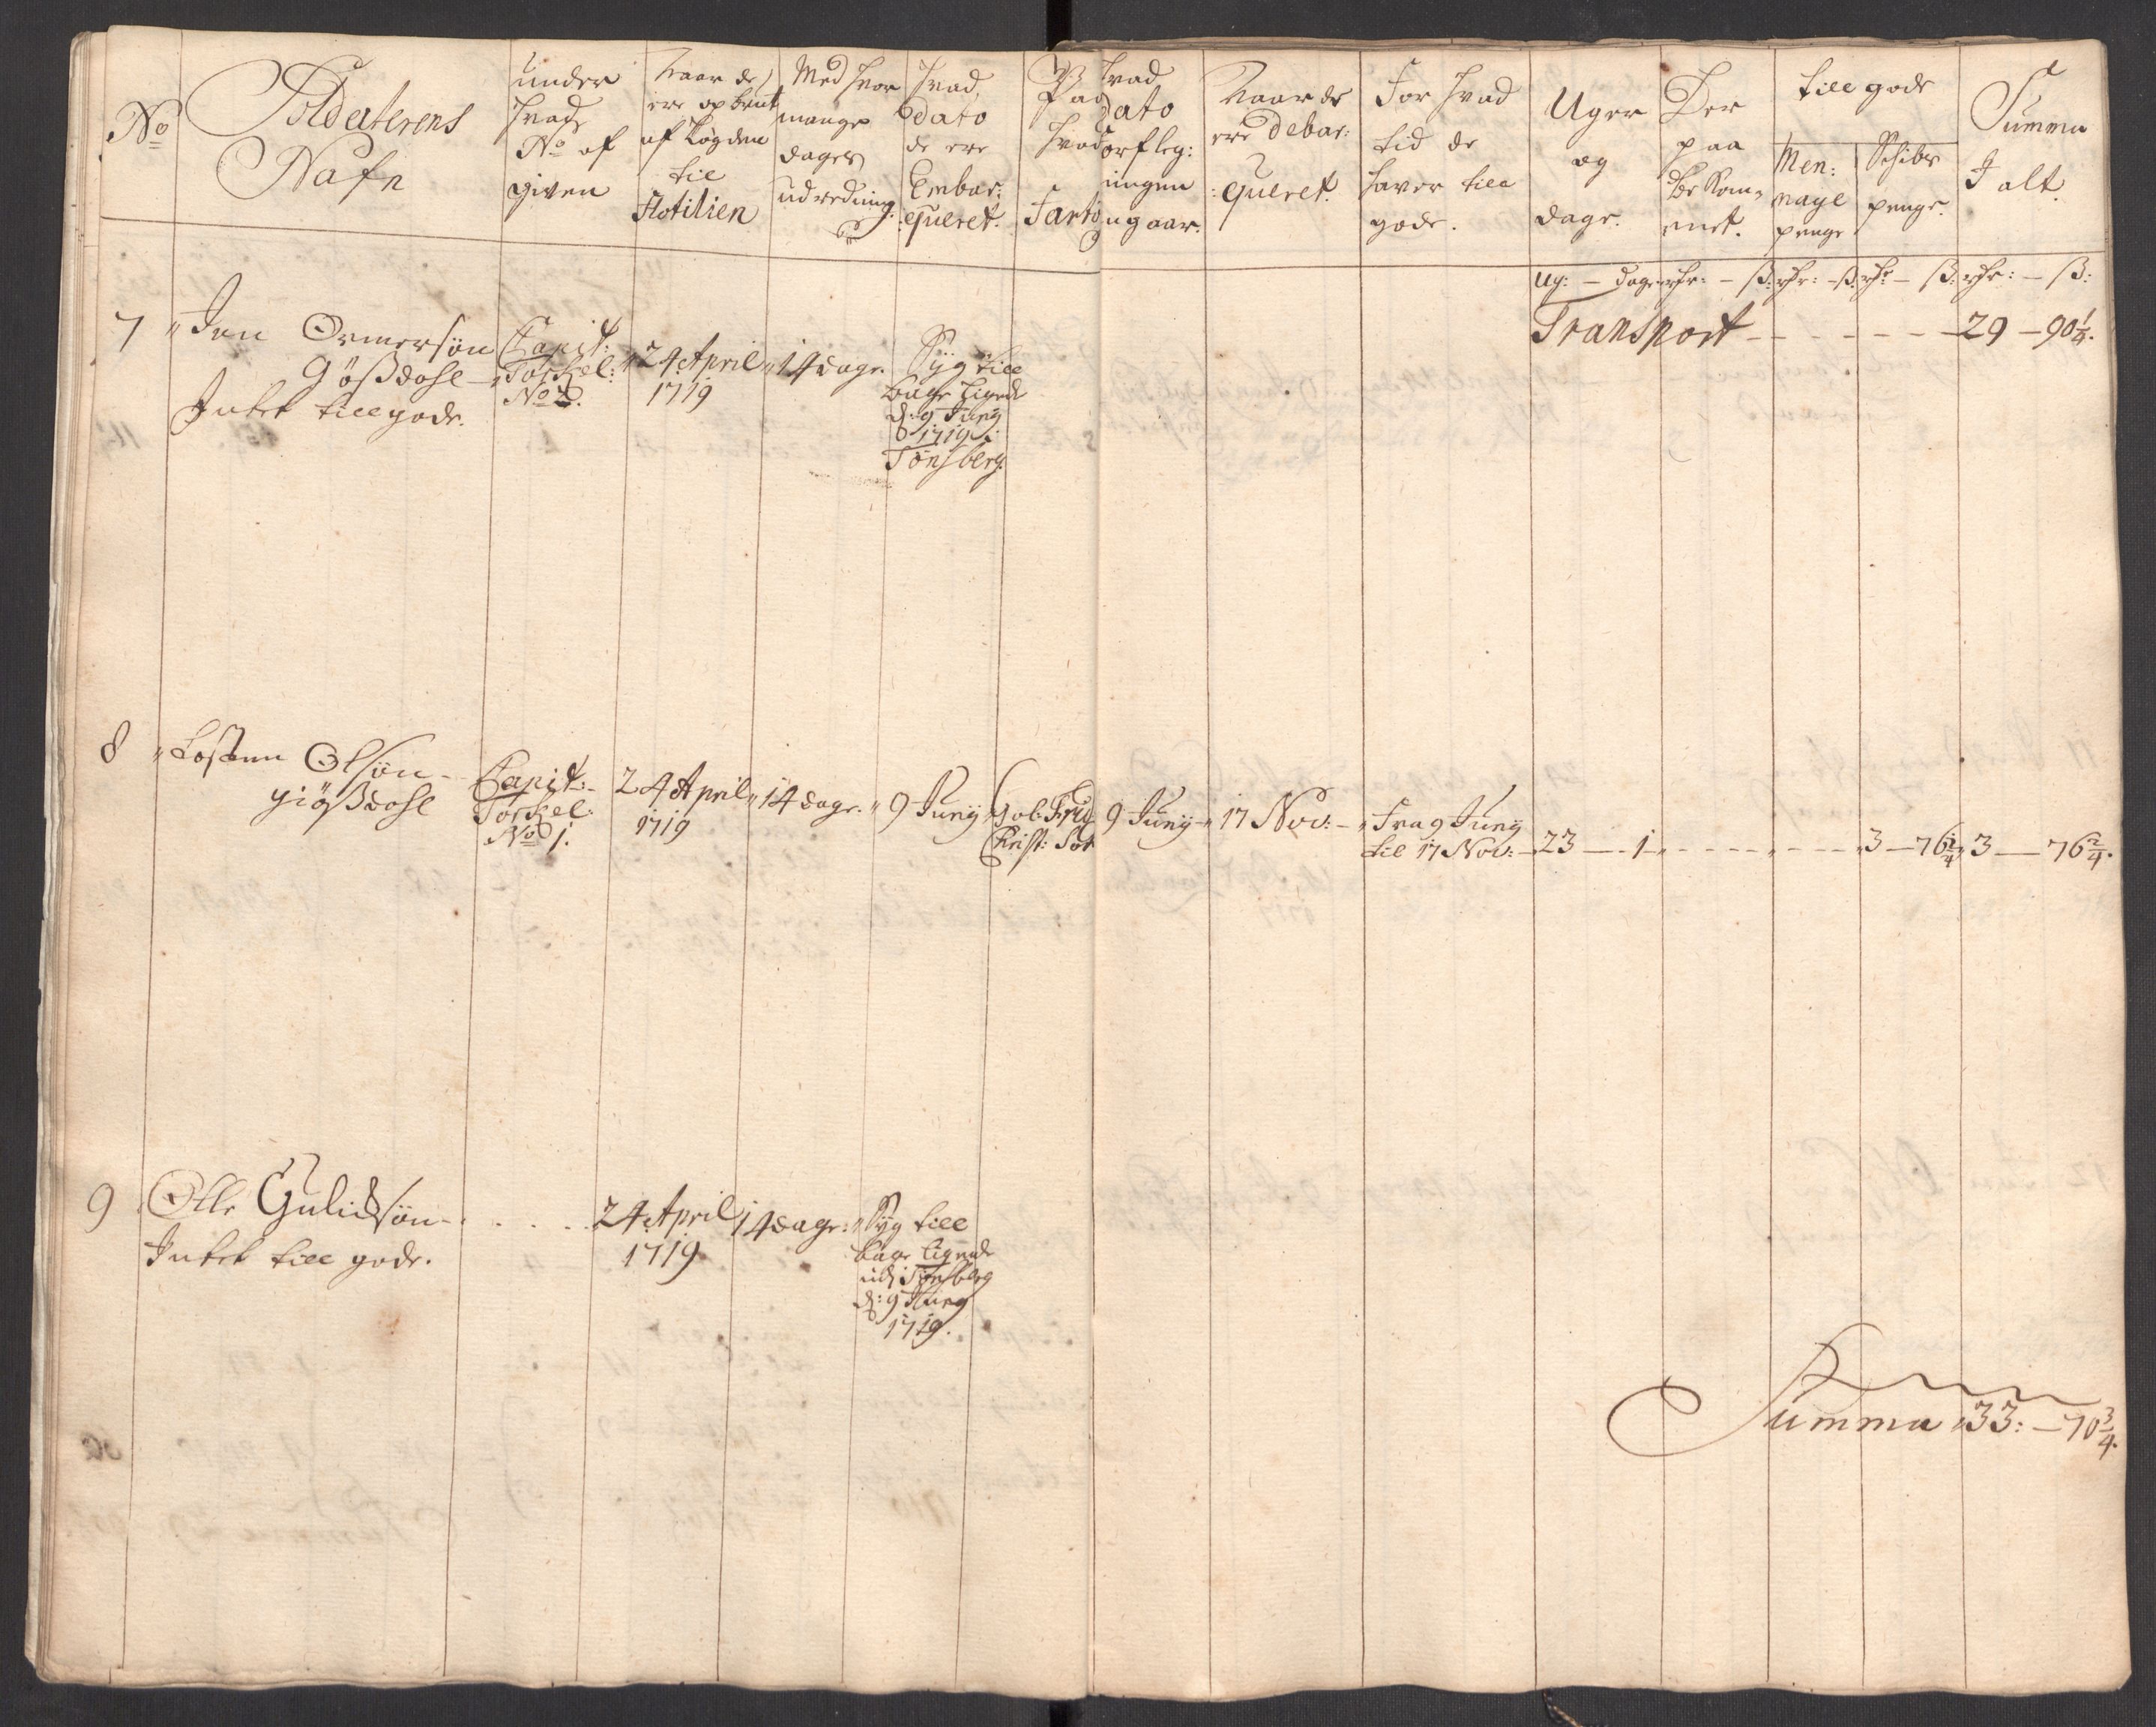 No
Soldaterens
Nafn
under
hvad
No af
given
Naar de
ere op brut
af Lægden
til
Flotilien
Med hvor
mange
dages
udredning
hvad
Dato
de ere
Embar:
queret.
Paa
hvad
Fartøy
hvad
Dato
orfleg:
ningen
angaar.
Naar de
ere debar:
queret.
For hvad
tid de
haver till
gode.
Uger
og
dage.
Der
paa
bekom-
met.
till gode
Men:
nage
penge
Schibs
penge.
Summa
I alt.
Ug: - dage rdr: - ß: rdr: - ß: rdr: - ß: rdr: - ß:
Transport - - - - - - 29 - 90 1/4.
7 Jon Ormersøn
Gößdahl
Intet till gode.
Capit:
Torkel:
No
24 April
1719
14 dage.
Syg till
bage liggende
d: 9 Juny
1719 i
Tønsberg
8 Losten Olsøn
giößdahl
Capit:
Torkel:
No 1.
24 April
1719
14 dage.
9 Juny
Gol: Frid
Christ: Sot
9 Juny
17 Nov:
Fra 9 Juny
til 17 Nov:
23 - 1 - - - - 3 - 76 2/4 3 - 76 2/4.
9 Olle Gulichsøn
Intet till gode.
24 April
1719
14 dage:
Syg till
bage liggende
udi Tønsberg
d: 9 Juny
1719.
Summa 33: - 70 3/4.